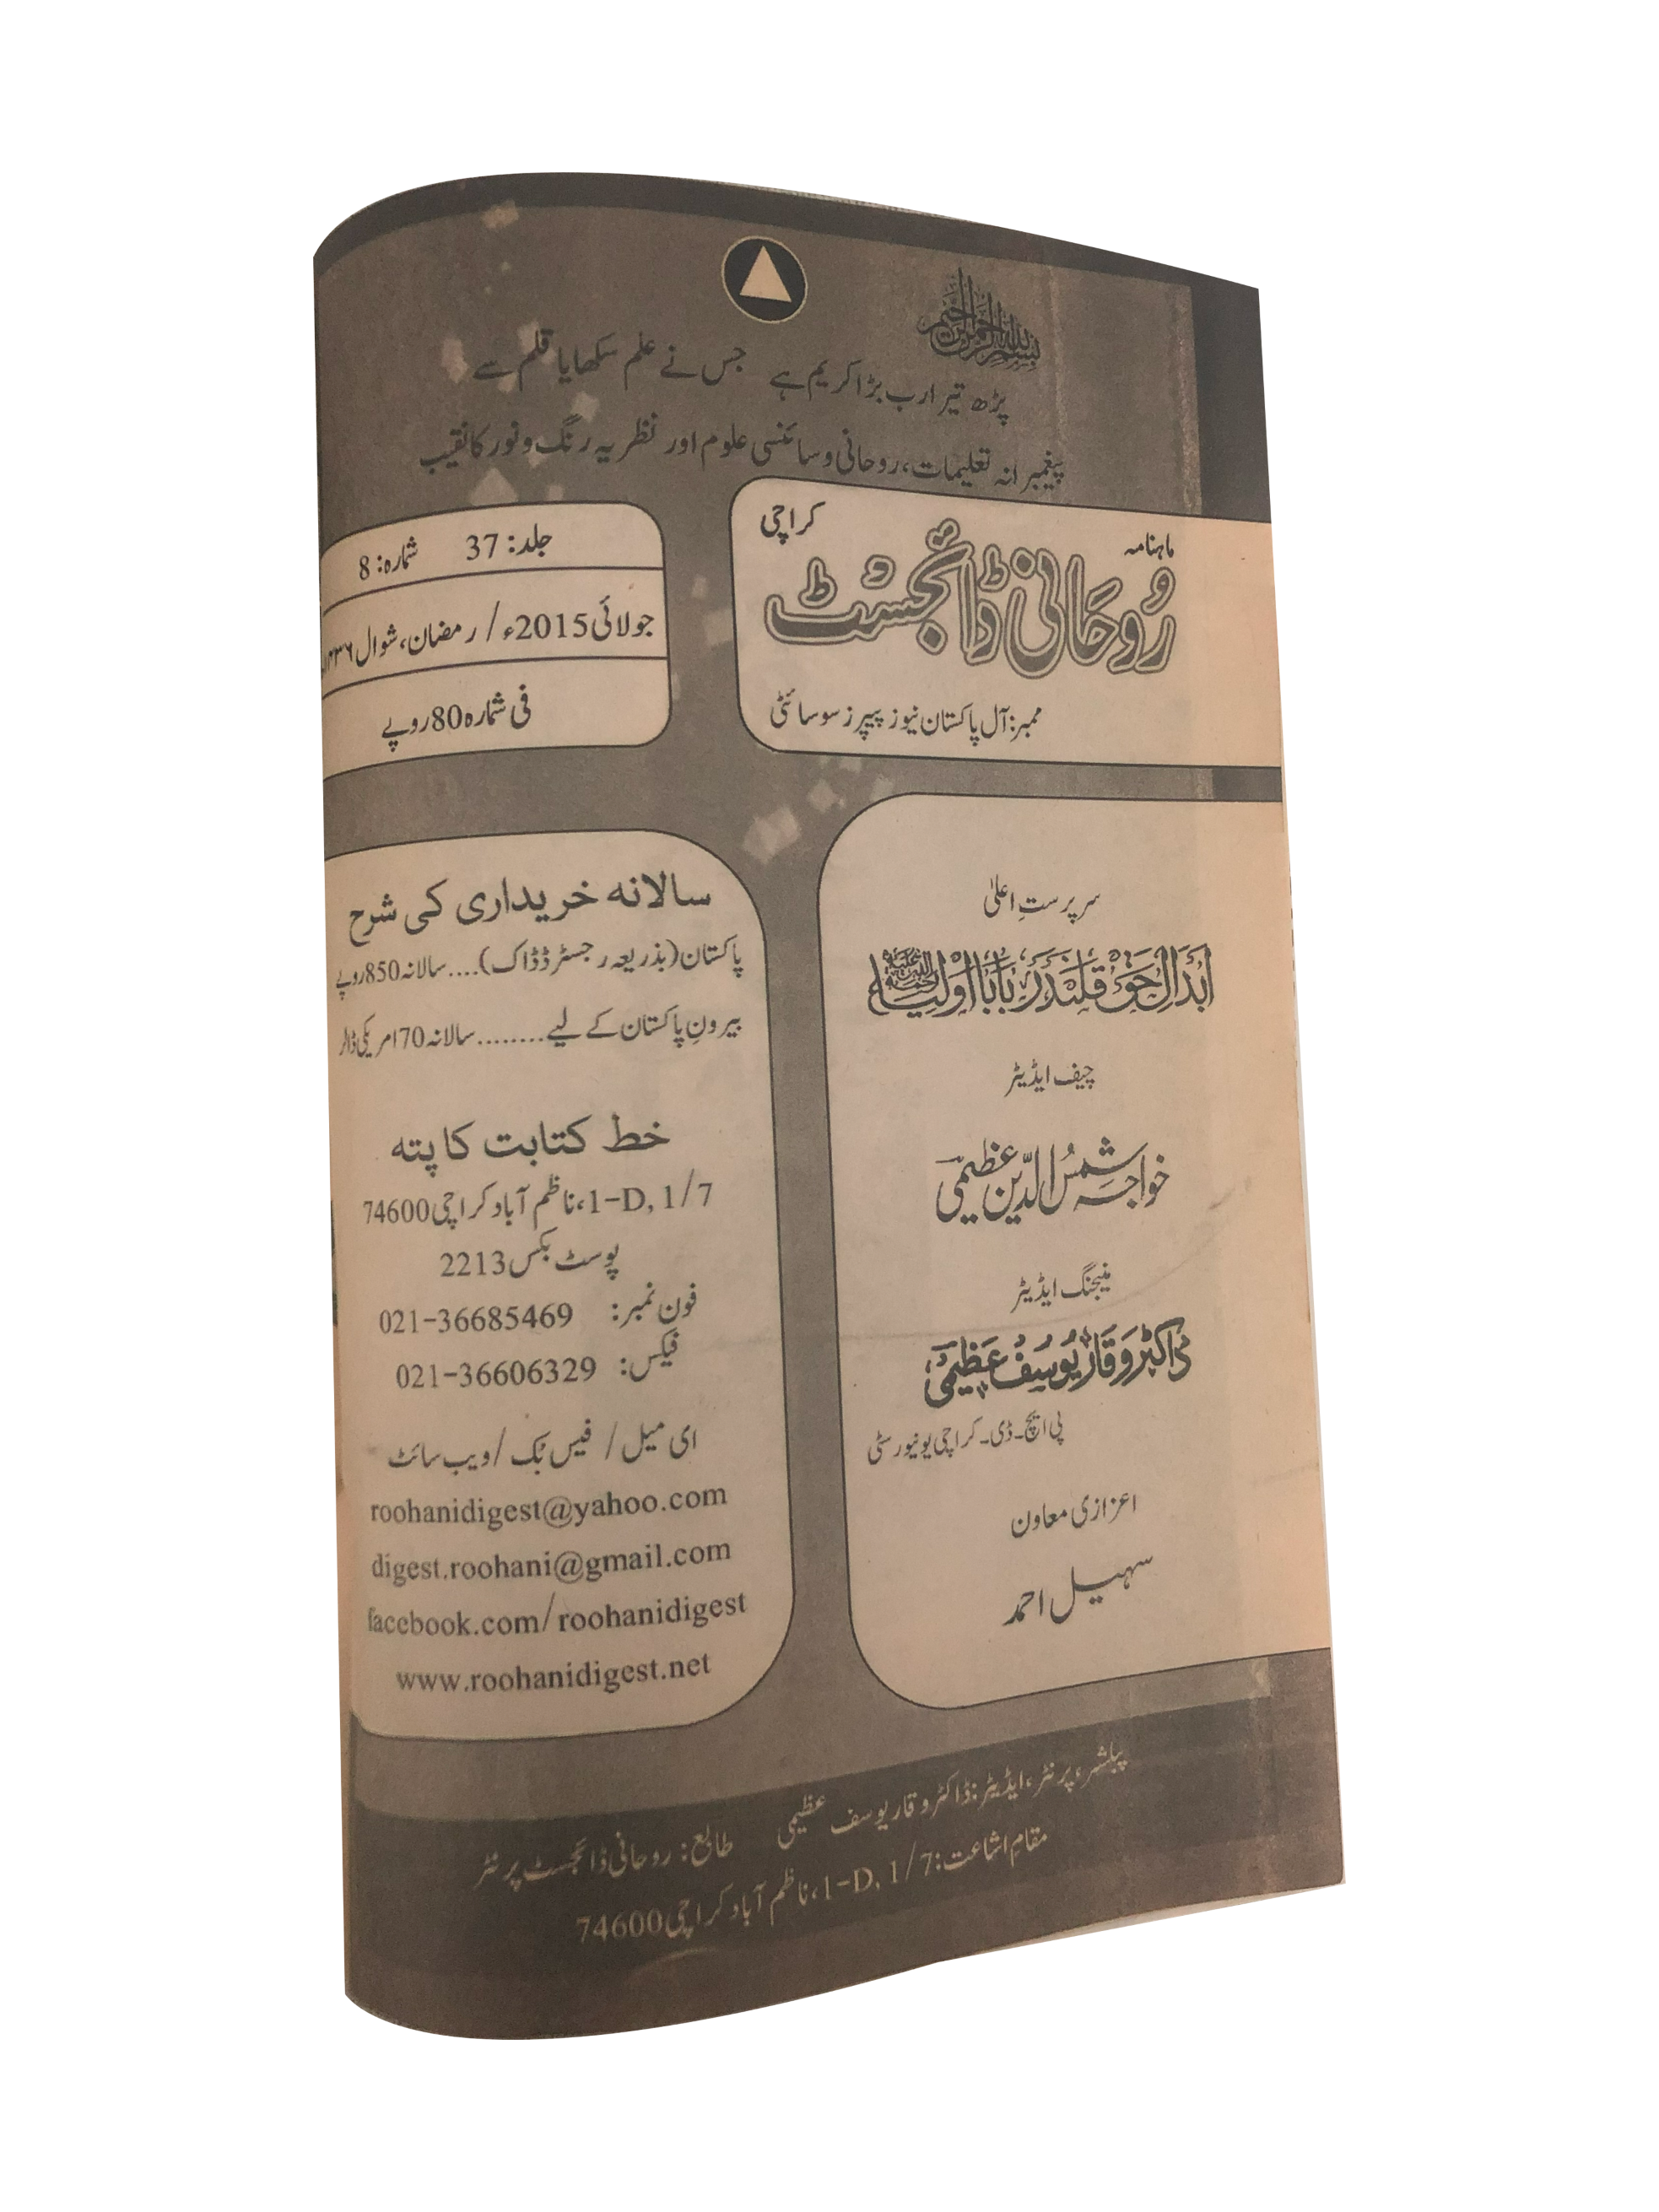 بسم اللہ الرحمن الرحیم
پڑھ تیرا رب بڑا کریم ہے جس نے علم سکھایا قلم سے
پیغمبرانہ تعلیمات، روحانی و سائنسی علوم اور نظریہ رنگ و نور کا نقیب
ماہنامہ
کراچی
رُوحانی ڈائجسٹ
ممبر: آل پاکستان نیوز پیپرز سوسائٹی
جلد: 37 شمارہ: 8
جولائی 2015ء / رمضان، شوال ۱۴۳۶
فی شمارہ 80 روپے
سرپرستِ اعلیٰ
ابدال حق قلندر بابا اولیاء رحمۃ اللہ علیہ
چیف ایڈیٹر
خواجہ شمس الدّین عظیمی
منیجنگ ایڈیٹر
ڈاکٹر وقار یوسف عظیمی
پی ایچ۔ڈی۔ کراچی یونیورسٹی
اعزازی معاون
سہیل احمد
سالانہ خریداری کی شرح
پاکستان (بذریعہ رجسٹرڈ ڈاک).... سالانہ 850 روپے
بیرونِ پاکستان کے لیے........ سالانہ 70 امریکی ڈالر
خط کتابت کا پتہ
1-D, 1/7، ناظم آباد کراچی 74600
پوسٹ بکس 2213
فون نمبر: 021-36685469
فیکس: 021-36606329
ای میل / فیس بُک / ویب سائٹ
roohanidigest@yahoo.com
digest.roohani@gmail.com
facebook.com/roohanidigest
www.roohanidigest.net
پبلشر، پرنٹر، ایڈیٹر: ڈاکٹر وقار یوسف عظیمی طابع: روحانی ڈائجسٹ پرنٹر
مقام اشاعت: 1-D, 1/7، ناظم آباد کراچی 74600